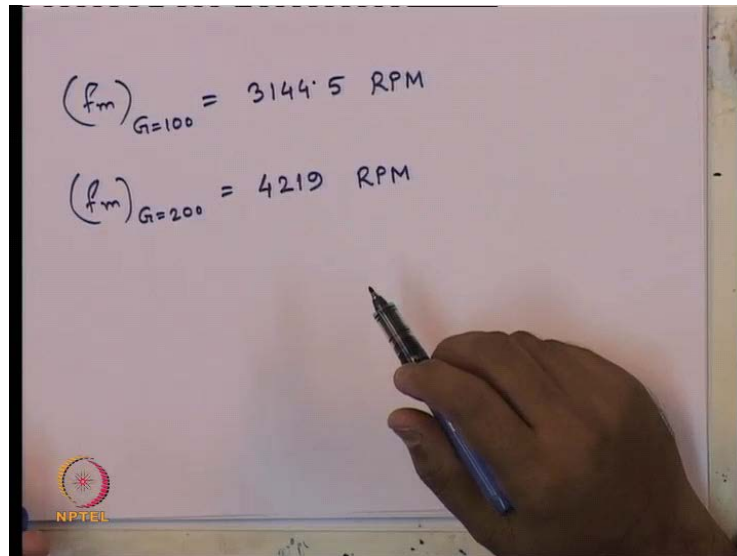 (fm)G=100 = 3144.5 RPM
(fm)G=200 = 4219 RPM
NPTEL